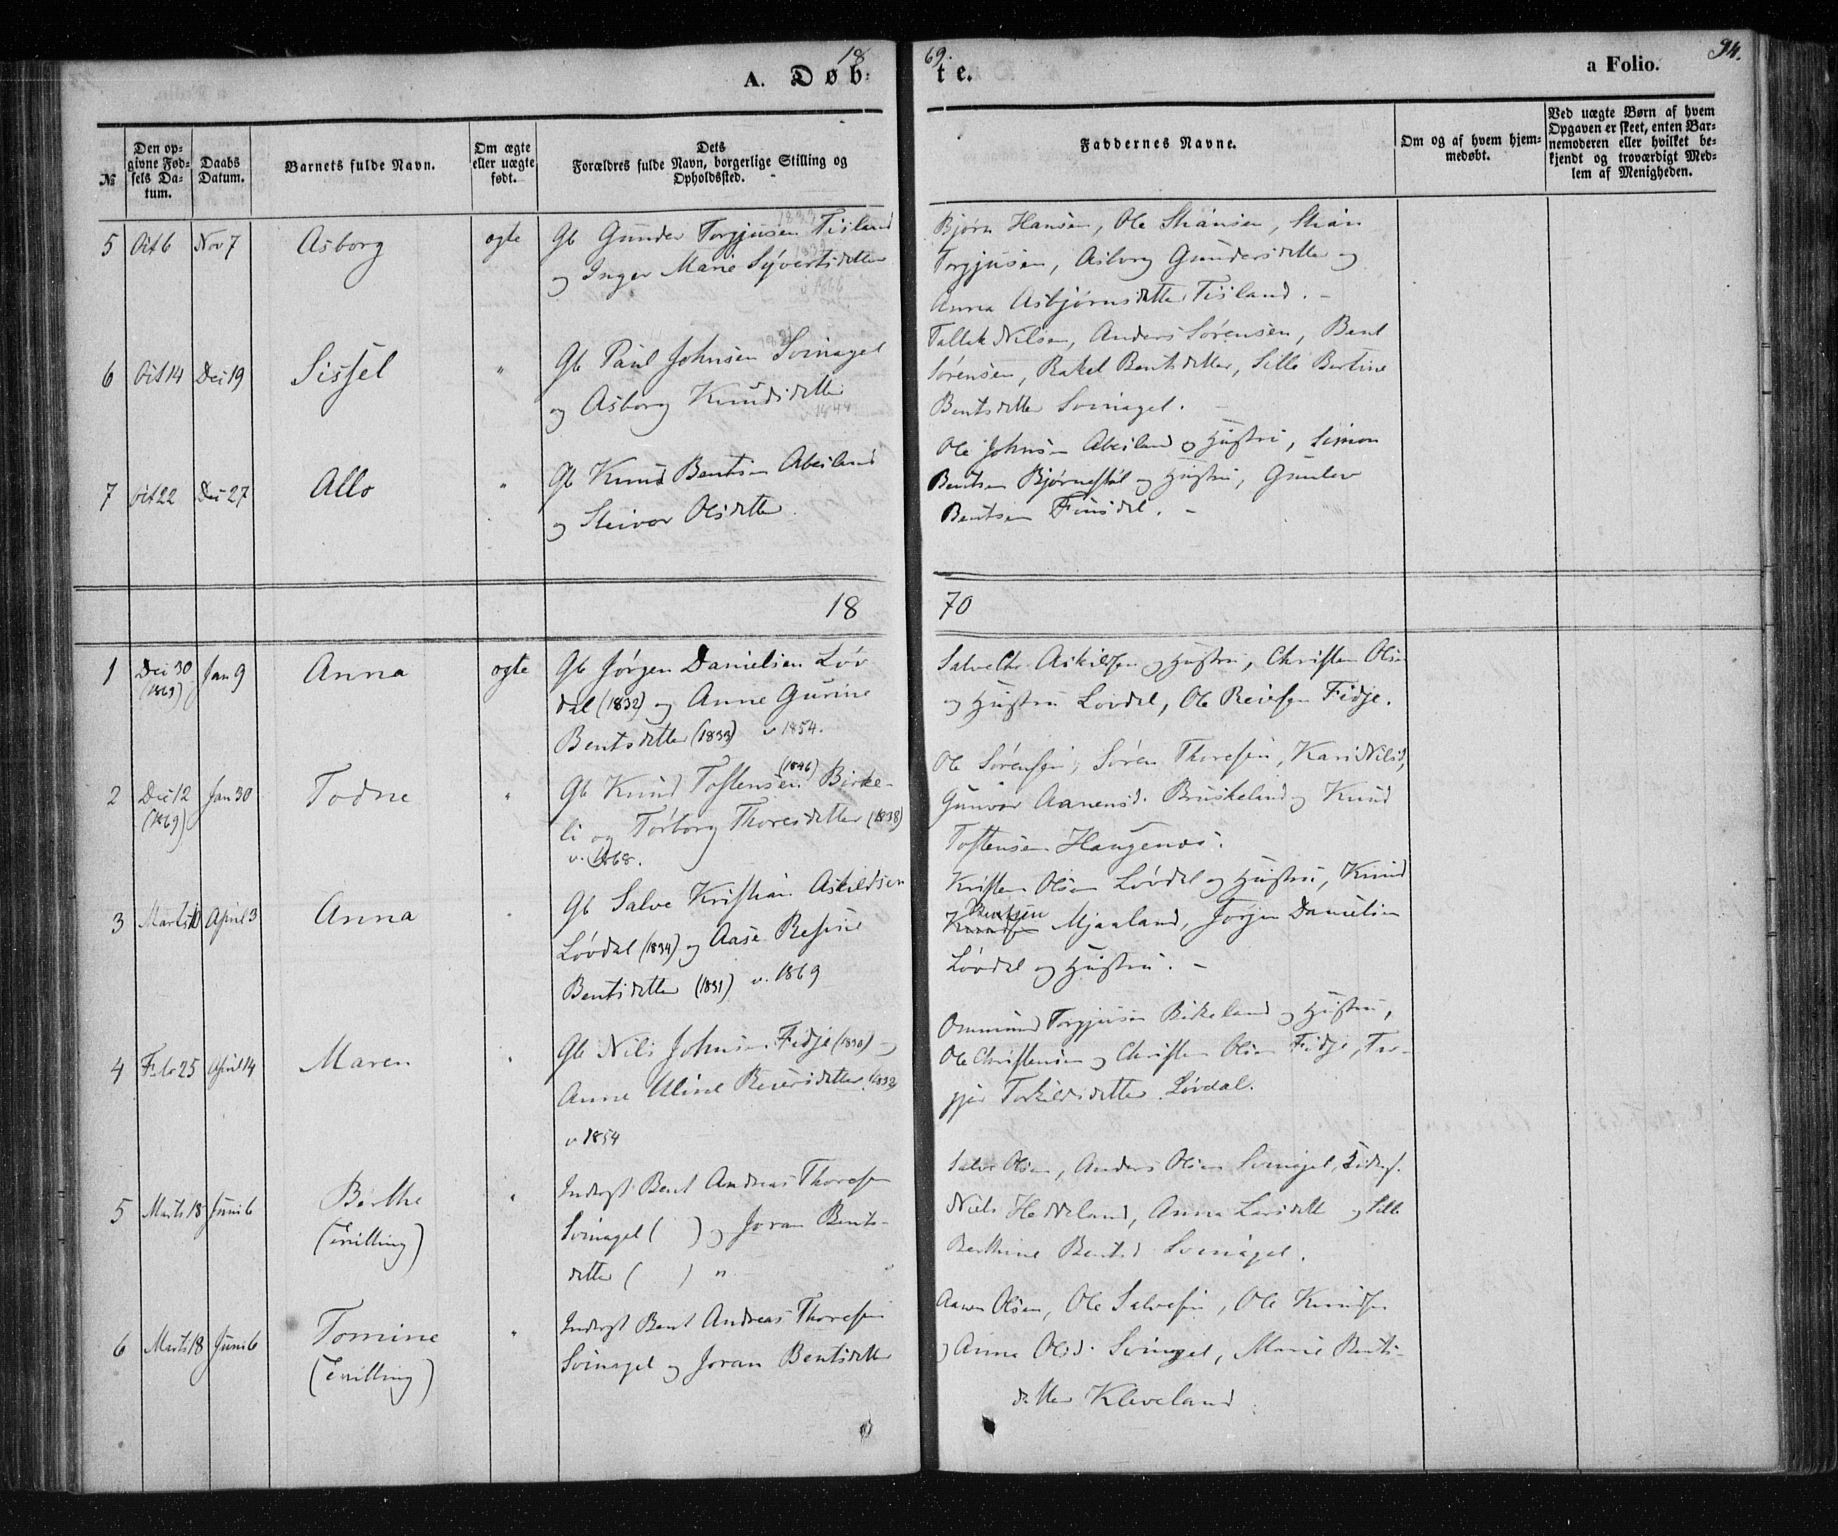 1869.
94.
A. Døbte.
a Folio.
№
Den op-
givne Fød-
sels Da-
tum.
Daabs
Datum.
Barnets fulde Navn.
Om ægte
eller uægte
født.
Dets
Forældres fulde Navn, borgerlige Stilling og
Opholdssted.
Faddernes Navne.
Om og af hvem hjem-
medøbt.
Ved uægte Børn af hvem
Opgaven er skeet, enten Bar-
nemoderen eller hvilket be-
kjendt og troværdigt Med-
lem af Menigheden.
5 Oct 6 Nov 7 Asborg ægte Gb Gunder Torgjusen Tisland
og Inger Marie Syvertsdatter
1866
Bjørn Hansen, Ole Stiansen, Stian
Torgjusen, Asborg Gundersdatter og
Anna Asbjørnsdatter Tisland. -
6 Oct 14 Dec 19 Sissel " Gb Paul Johnsen Svinagel
og Asborg Knudsdatter
1844
Tallak Nilsen, Anders Sørensen, Bent
Sørensen, Rakel Bentsdatter, Sille Bertine
Bentsdatter Svinagel. -
7 Oct 22 Dec 27 Allo " Gb Knud Bentsen Abeiland
og Steivor Olsdatter
Ole Johnsen Abeiland og Hustru, Simon
Bentsen Bjørnestøl og Hustru, Gunlev
Bentsen Finsdal. -
1870
1 Dec 30 (1869) Jan 9 Anna ægte Gb Jørgen Danielsen Løv
dal (1832) og Anne Gurine
Bentsdatter (1833) v 1854.
Salve Chr. Askildsen og Hustru, Christen Olsen
og Hustru Løvdal, Ole Reiersen Fidje.
2 Dec 12 (1869) Jan 30 Todne " Gb Knud Toftensen (1846) Birke-
li og Torborg Thoresdatter (1838)
v. 1868.
Ole Sørensen, Søren Thoresen, Kari Nilsd,
Gunvor Aanensd. Bruskeland og Knud
Toftensen Haugenes.
3 Marts 10 April 3 Anna " Gb Salve Kristian Askildsen
Løvdal (1834) og Aase Resine
Bentsdatter (1831) v. 1869
Kristen Olsen Løvdal og Hustru, Knud
Bentsen
Knudsen Mjaaland, Jørgen Danielsen
Løvdal og Hustru. -
4 Febr 25 April 14 Maren " Gb Nils Johnsen Fidje (1830) og
Anne Uline Reiersdatter (1832)
v 1854
Ommund Torgjusen Birkeland og Hustru,
Ole Christensen og Christen Olsen Fidje, Tor-
gjer Torkildsdatter Løvdal.
5 Marts 18 Juni 6 Berthe
(Tvilling) " Inderst Bent Andreas Thoresen
Svinagel ( ) og Joran Bents-
datter ( ) "
Salve Olsen, Anders Olsen Svinagel,
Niels Heddeland, Anna Larsdatter og Sille
Berthine Bentsd Svinagel.
6 Marts 18 Juni 6 Tomine
(Tvilling) " Inderst Bent Andreas Thoresen
Svinagel og Joran Bentsdatter
Aanen Olsen, Ole Salvesen, Ole Knudsen
og Anna Olsd. Svinagel, Marie Bents-
datter Kleveland.